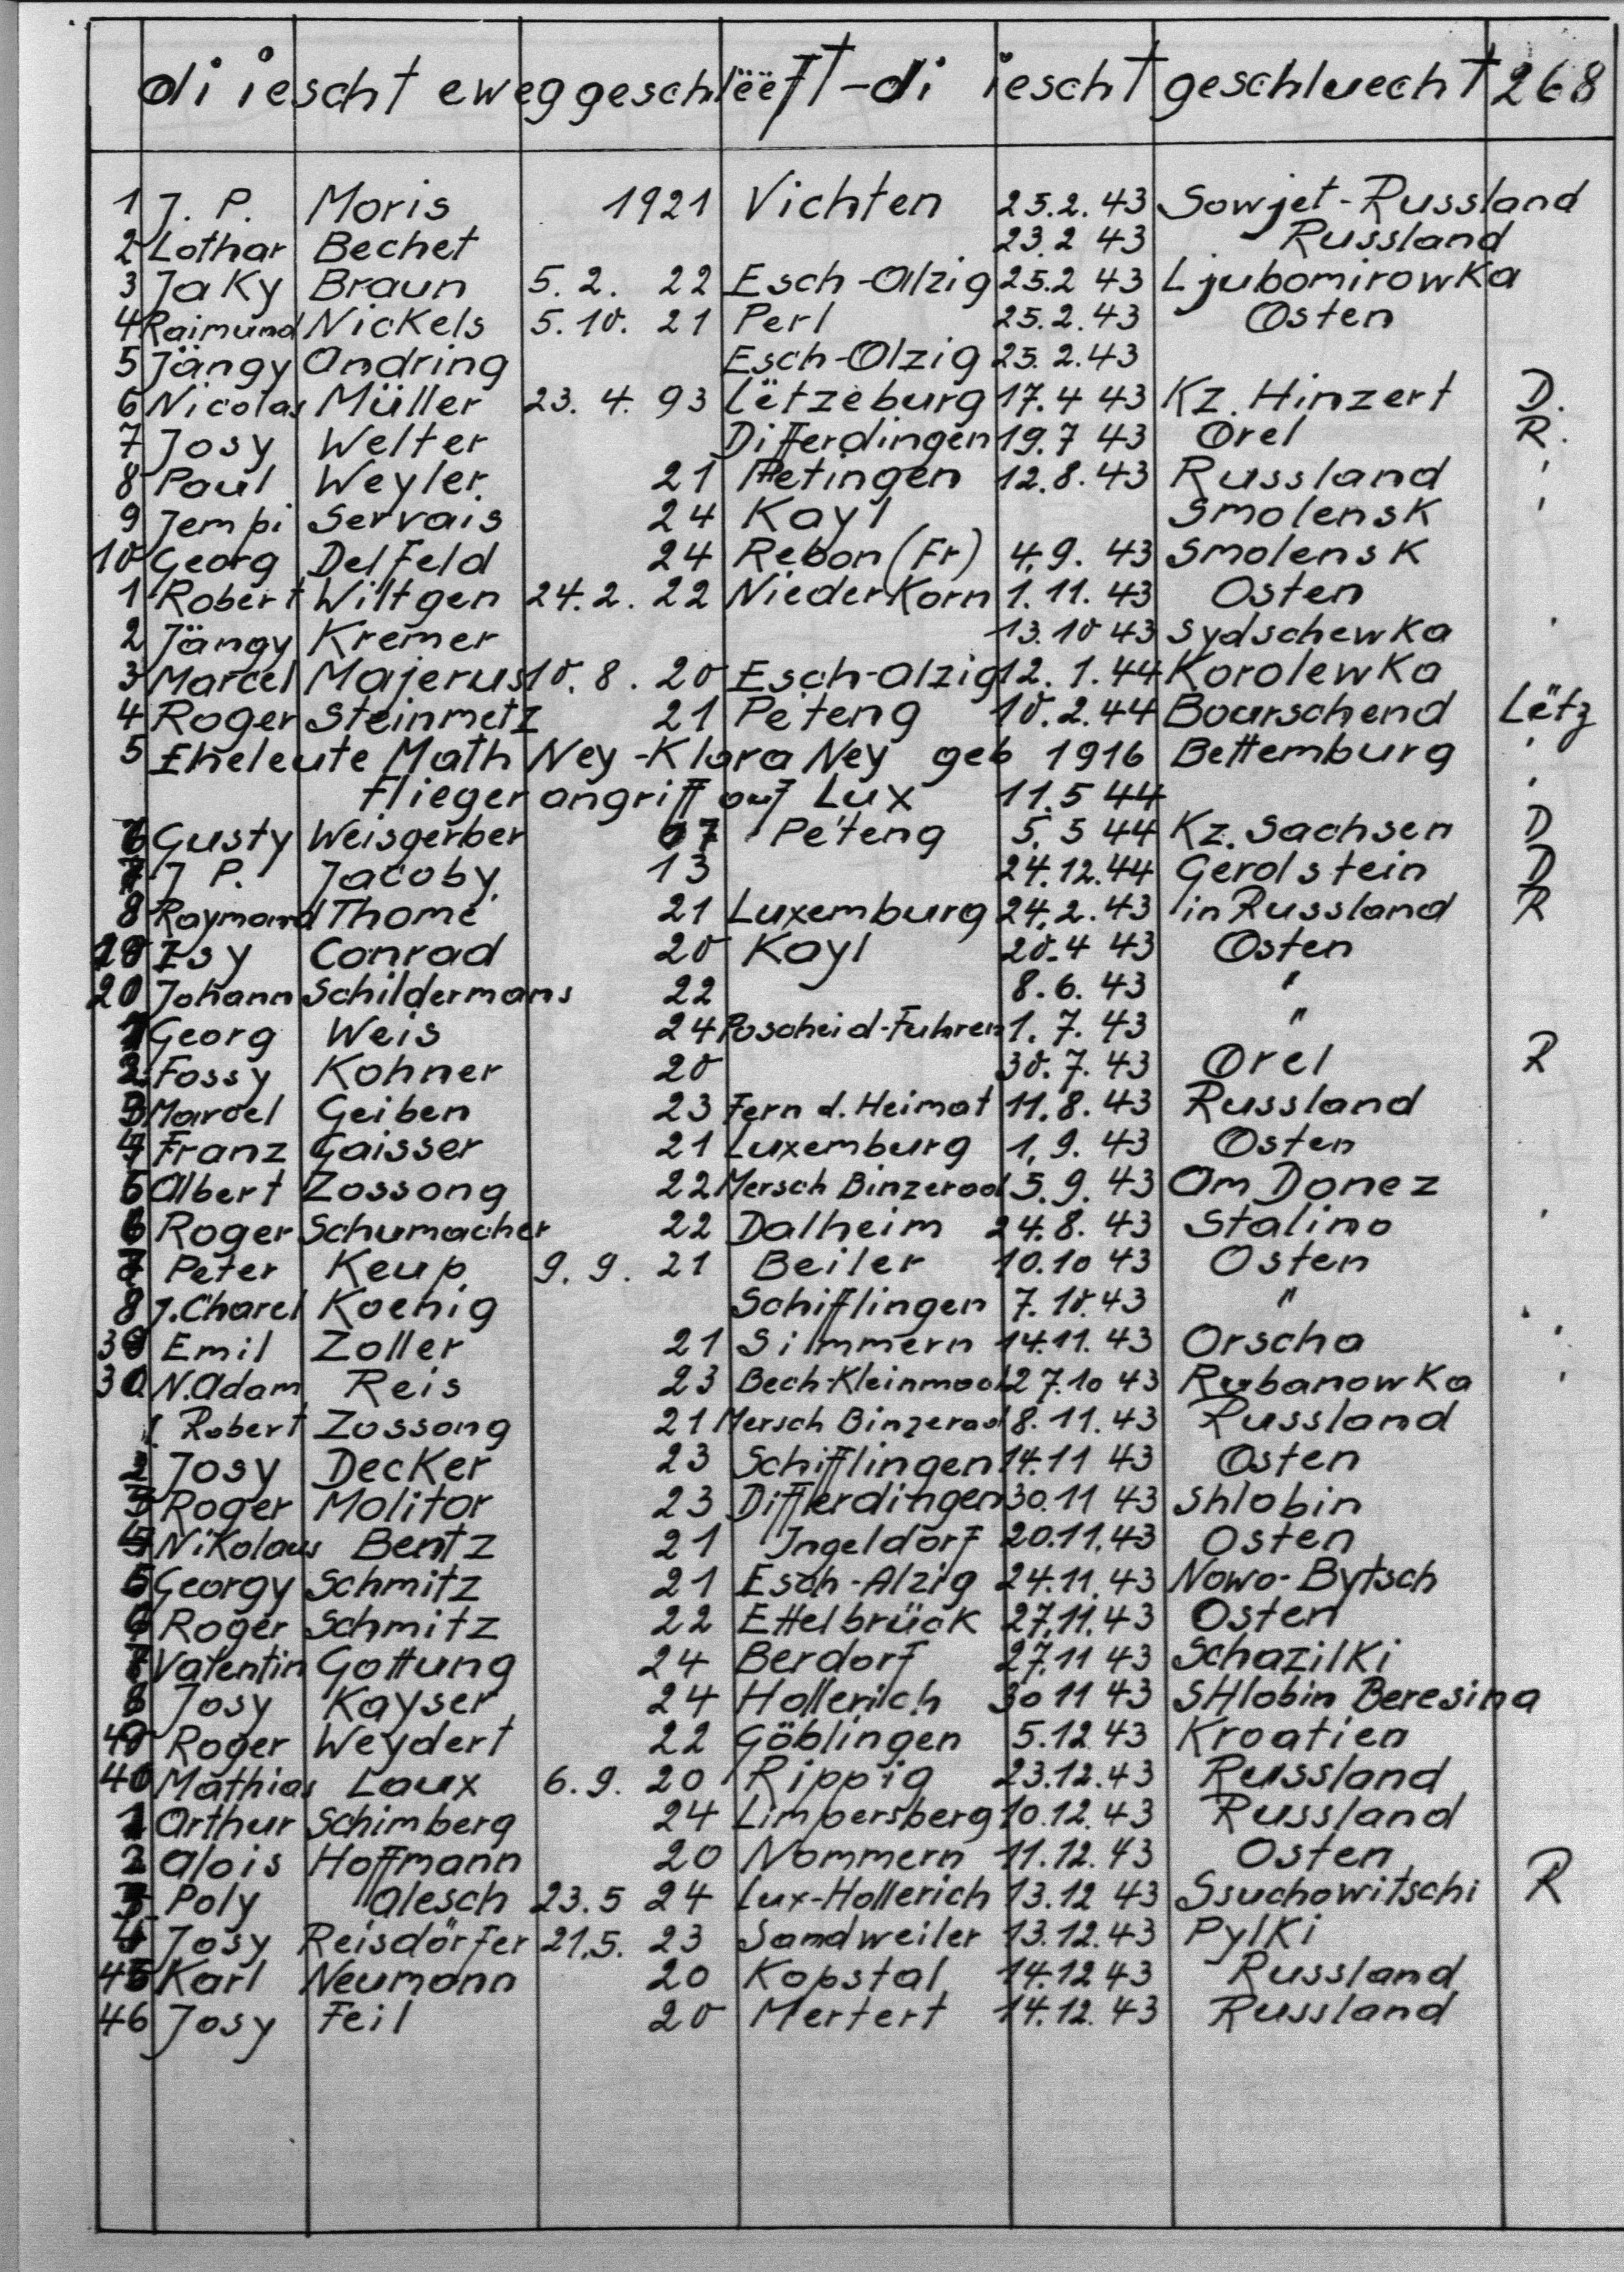 di iescht eweggeschlëëft - di iescht geschluecht 268
1 J. P. Moris 1921 Vichten 25.2.43 Sowjet-Russland
2 Lothar Bechet 23.2 43 Russland
3 Jaky Braun 5.2. 22 Esch-Alzig 25.2 43 Ljubomirowka
4 Raimund Nickels 5.10. 21 Perl 25.2.43 Osten
5 Jängy Ondring Esch-Olzig 25.2.43
6 Nicolas Müller 23.4. 93 Lëtzeburg 17.4 43 Kz. Hinzert D.
7 Josy Welter Differdingen 19.7 43 Orel R.
8 Paul Weyler 21 Petingen 12.8.43 Russland '
9 Jempi Servais 24 Kayl Smolensk '
10 Georg Delfeld 24 Rebon (Fr) 4.9. 43 Smolensk
1 Robert Wiltgen 24.2. 22 Niederkorn 1.11. 43 Osten
2 Jängy Kremer 13.10 43 Sydschewka '
3 Marcel Majerus 10.8. 20 Esch-Alzig 12.1.44 Korolewka
4 Roger Steinmetz 21 Péteng 10.2.44 Bourschend Lëtz
5 Eheleute Math Ney - Klara Ney geb 1916 Bettemburg '
Fliegerangriff auf Lux 11.5 44 '
6 Gusty Weisgerber 07 Péteng 5.5 44 Kz. Sachsen D
7 J P. Jacoby 13 24.12.44 Gerolstein D
8 Raymond Thomé 21 Luxemburg 24.2.43 in Russland R
Isy Conrad 20 Kayl 20.4 43 Osten
20 Johann Schildermans 22 8.6. 43 "
1 Georg Weis 24 Poscheid-Fuhren 1.7.43 "
2 Fossy Kohner 20 30.7.43 Orel R
3 Marcel Geiben 23 Fern d. Heimat 11.8.43 Russland
4 Franz Gaisser 21 Luxemburg 1.9. 43 Osten
5 Albert Zossong 22 Mersch Binzerod 5.9. 43 Am Donez
6 Roger Schumacher 22 Dalheim 24.8. 43 Stalino '
7 Peter Keup 9.9. 21 Beiler 10.10 43 Osten
8 J. Charel Koenig Schifflingen 7.10.43 "
Emil Zoller 21 Simmern 14.11. 43 Orscha '
30 N. Adam Reis 23 Bech-Kleinmach 27.10 43 Rubanowka '
1 Robert Zossong 21 Mersch Binzerod 8.11.43 Russland
2 Josy Decker 23 Schifflingen 14.11 43 Osten
3 Roger Molitor 23 Differdingen 30.11 43 Shlobin
4 Nikolaus Bentz 21 Ingeldorf 20.11.43 Osten
5 Georgy Schmitz 21 Esch-Alzig 24.11.43 Nowo-Bytsch
6 Roger Schmitz 22 Ettelbrück 27.11.43 Osten
7 Valentin Gottung 24 Berdorf 27.11 43 Schazilki
8 Josy Kayser 24 Hollerich 30 11 43 SHlobin Beresina
Roger Weydert 22 Göblingen 5.12.43 Kroatien
40 Mathias Laux 6.9. 20 Rippig 23.12.43 Russland
1 Arthur Schimberg 24 Limpersberg 10.12.43 Russland
2 Alois Hoffmann 20 Nommern 11.12.43 Osten
3 Poly Alesch 23.5 24 Lux-Hollerich 13.12 43 Ssuchowitschi R
4 Josy Reisdörfer 21.5. 23 Sandweiler 13.12.43 Pylki
45 Karl Neumann 20 Kopstal 14.12 43 Russland
46 Josy Feil 20 Mertert 14.12.43 Russland